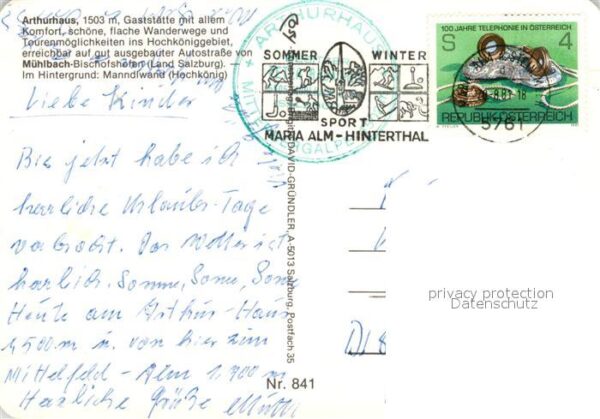 Arthurhaus, 1503 m, Gaststätte mit allem
Komfort, schöne, flache Wanderwege und
Tourenmöglichkeiten ins Hochköniggebiet,
erreichbar auf gut ausgebauter Autostraße von
Mühlbach-Bischofshofen (Land Salzburg).
Im Hintergrund: Manndlwand (Hochkönig)
Liebe Kinder
Bis jetzt habe ich
herrliche Urlaubs-Tage
verbracht. Das Wetter ist
herlich. Sonne, Sonne, Sonne
Heute am Arthur-Haus
1500 m u. von hier zum
Mittelfeld-Alm 1300 m
Herzliche Grüße Mutti
DAVID-GRÜNDLER, A-5013 Salzburg, Postfach 35
Nr. 841
ARTHURHAUS
SOMMER WINTER
SPORT
MARIA ALM-HINTERTHAL
100 JAHRE TELEPHONIE IN ÖSTERREICH
S 4
REPUBLIK ÖSTERREICH
5761
privacy protection
Datenschutz